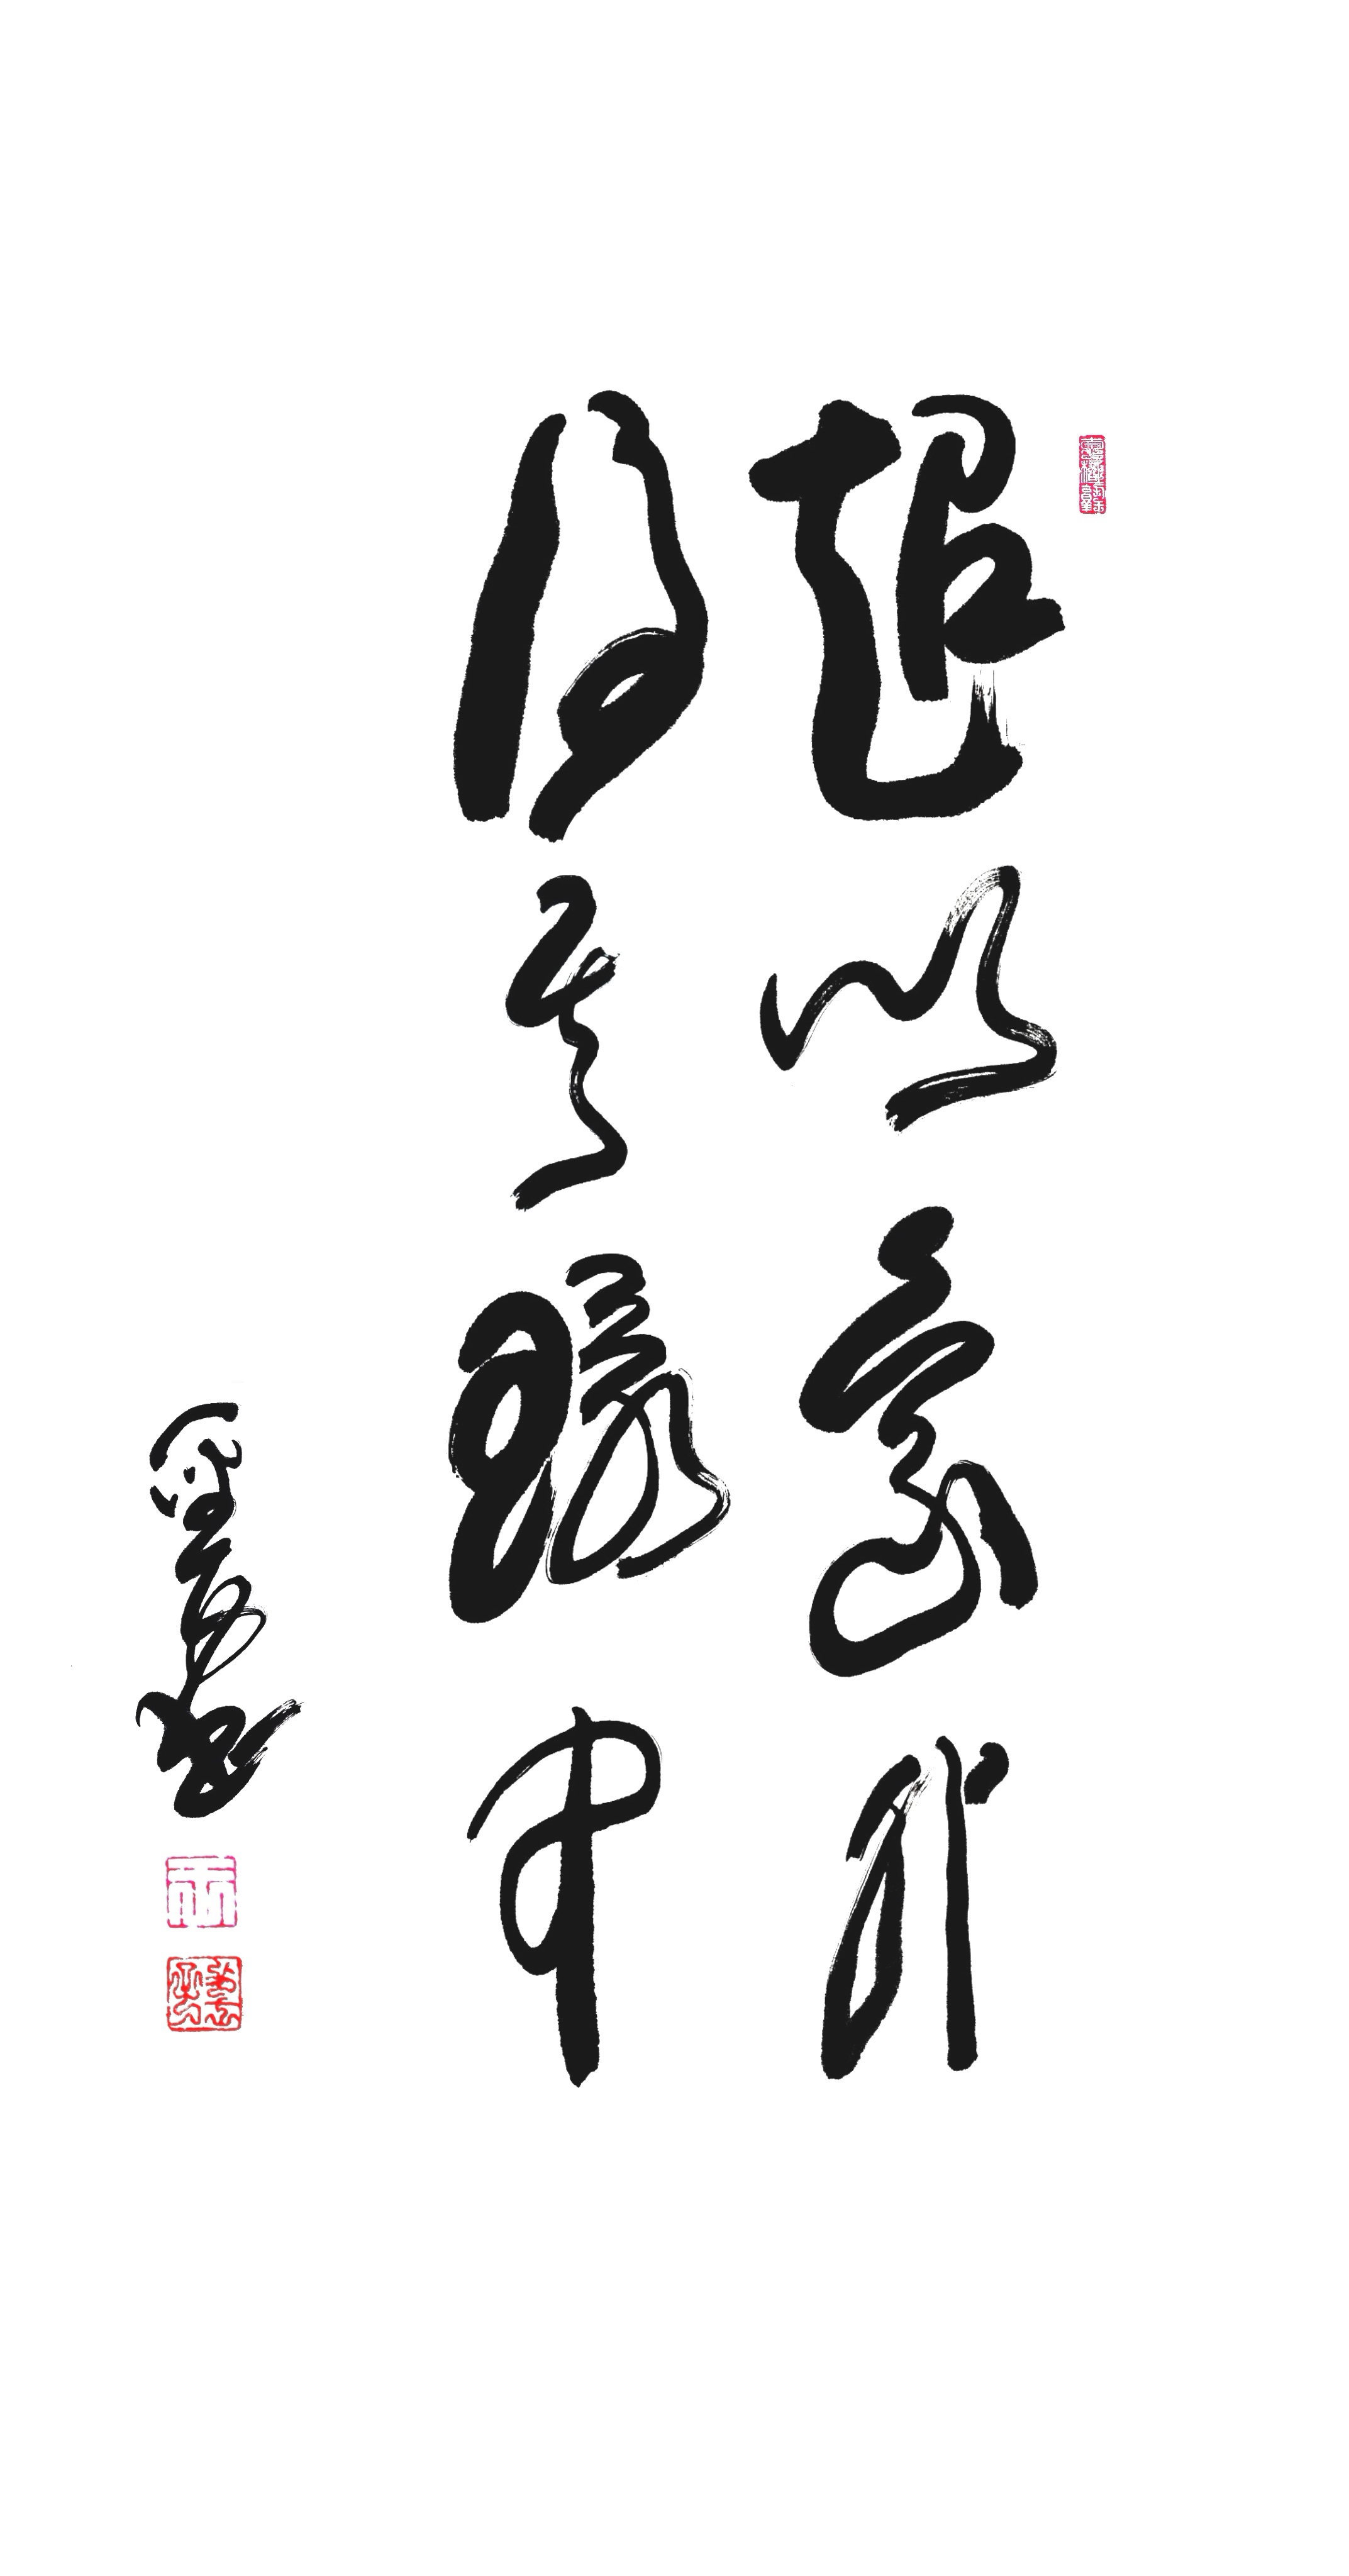 超以象外
得其環中